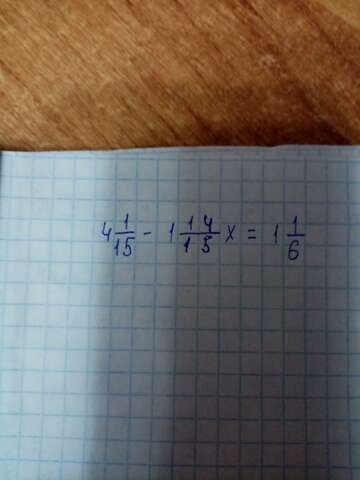 4 1/15 - 1 14/15 x = 1 1/6